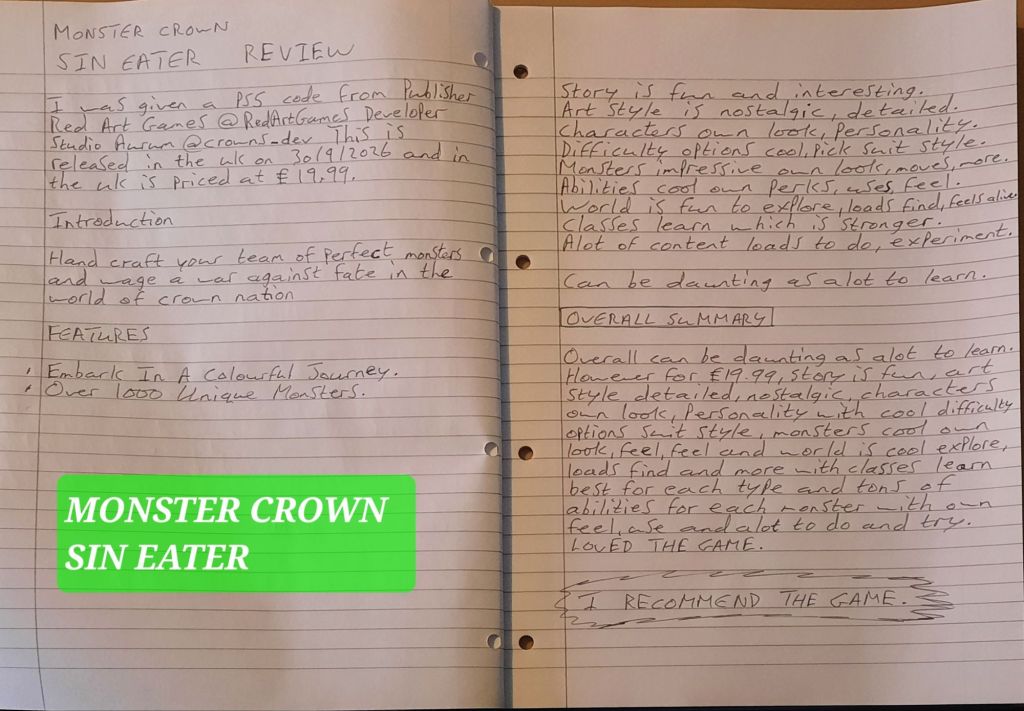 MONSTER CROWN
SIN EATER REVIEW
I was given a PS5 code from Publisher
Red Art Games @RedArtGames Developer
Studio Aurum @crowns_dev This is
released in the uk on 30/9/2026 and in
the uk is priced at £19.99.
Introduction
Hand craft your team of perfect monsters
and wage a war against fate in the
world of crown nation
FEATURES
• Embark In A Colourful Journey.
• Over 1000 Unique Monsters.
MONSTER CROWN
SIN EATER
Story is fun and interesting.
Art Style is nostalgic, detailed.
Characters own look, Personality.
Difficulty options cool, Pick suit style.
Monsters impressive own look, moves, more.
Abilities cool own Perks, uses, feel.
World is fun to explore, loads find, feels alive.
Classes learn which is stronger.
Alot of content loads to do, experiment.
Can be daunting as alot to learn.
OVERALL SUMMARY
Overall can be daunting as alot to learn.
However for £19.99, story is fun, art
style detailed, nostalgic, characters
own look, Personality with cool difficulty
options suit style, monsters cool own
look, feel, feel and world is cool explore,
loads find and more with classes learn
best for each type and tons of
abilities for each monster with own
feel, use and alot to do and try.
LOVED THE GAME.
I RECOMMEND THE GAME.